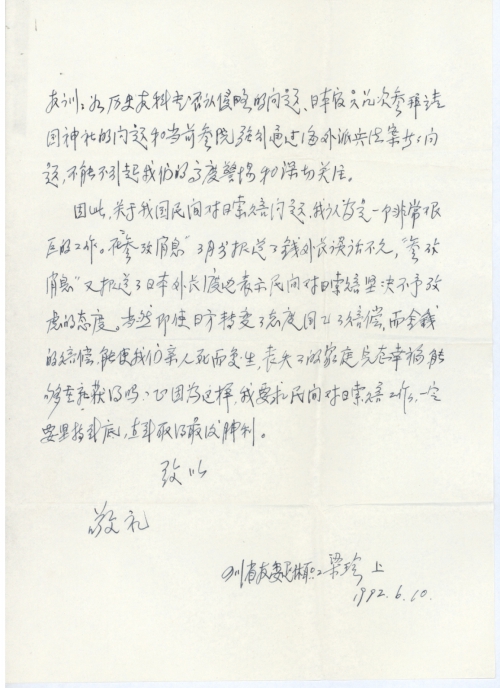 教训：如历史教科书否认侵略的问题、日本官员几次参拜靖
国神社的问题和当前参院强行通过海外派兵法案等问
题，不能不引起我们的高度警惕和深切关注。
因此，关于我国民间对日索赔问题，我认为是一个非常艰
巨的工作。在"参考消息"3月分报道了钱外长谈话不久，"参考
消息"又报道了日本外长渡边表示民间对日索赔坚决不予考
虑的态度。当然即使日方转变了态度同意了赔偿，而金钱
的赔偿，能使我们亲人死而复生，丧失了的家庭幸福能
够重新获得吗？正因为这样，我要求民间对日索赔工作，一定
要坚持到底，直到取得最后胜利。
致以
敬礼
四川省 退休职工 梁珍 上
1992.6.10.